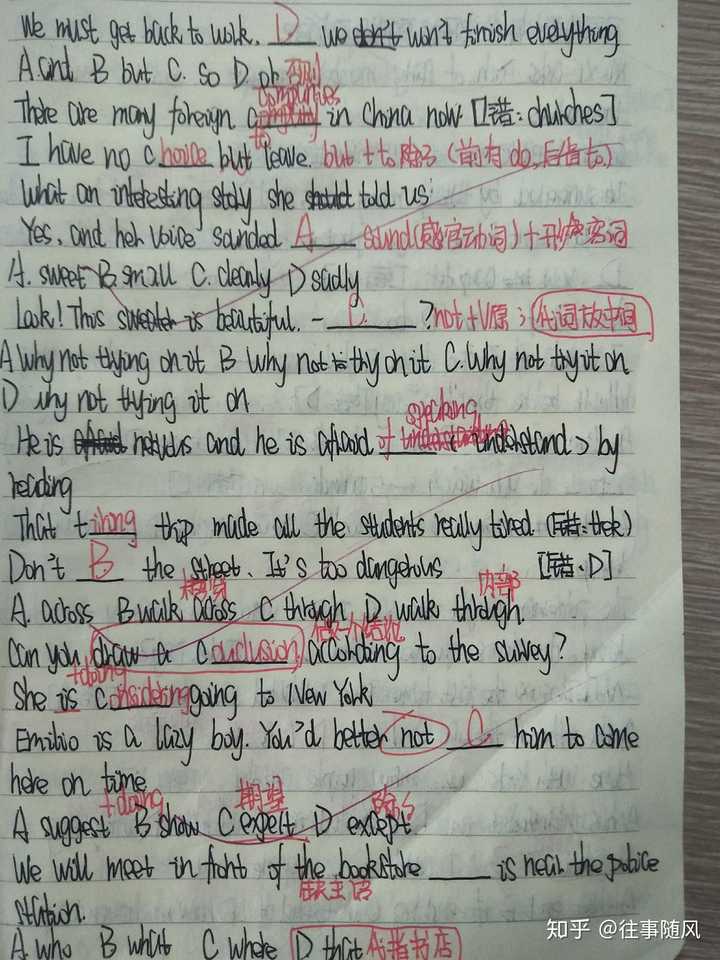 We must get back to work. D we don't won't finish everything
A.and B but C. so D or 否则
companies
There are many foreign c in China now. [错: churches]
to
I have no choice but leave. but + to 除了 (前有do,后省to)
What an interesting story she should told us!
Yes, and her voice sounded A sound(感官动词)+形容词
A. sweet B small C. clearly D sadly
Look! This sweater is beautiful. - C ? not +V原 ; 代词放中间
A Why not trying on it B Why not to try on it C. Why not try it on
D why not trying it on
speaking
He is afraid nervous and he is afraid of < understand > by
reading
That tiring trip made all the students really tired (错: trek)
Don't B the street. It's too dangerous [错: D]
横穿 内部
A. across B walk across C through D walk through.
Can you draw a conclusion according to the survey?
+doing
She is considering going to New York
Emilio is a lazy boy. You'd better not C him to come
here on time
+doing 期望 除了
A suggest B show C expect D except
We will meet in front of the bookstore is near the police
station. 缺主语
A who B what C where D that 代指书店
知乎 @往事随风